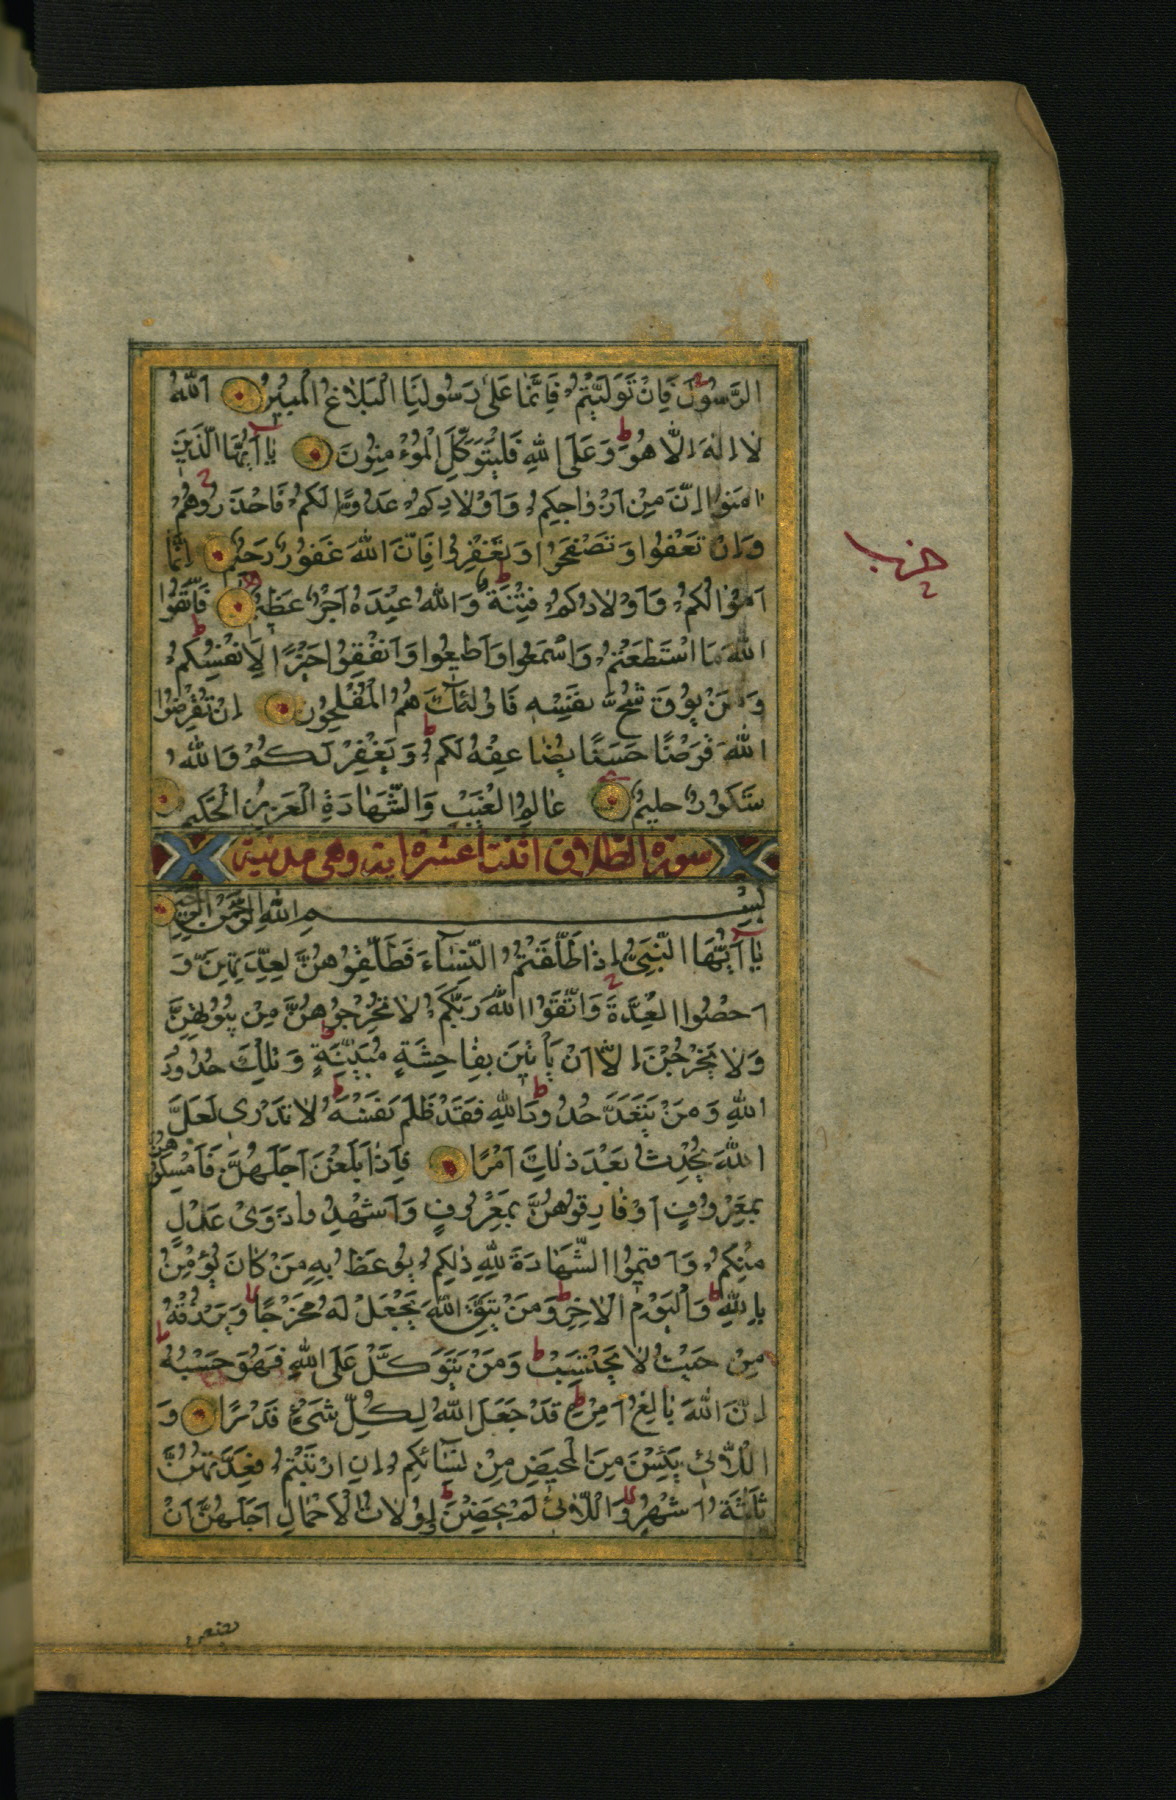 الرَّسُولَ فَاِنْ تَوَلَّيْتُمْ فَاِنَّمَا عَلٰى رَسُولِنَا الْبَلَاغُ الْمُبِينُ اَللّٰهُ
لَا اِلٰهَ اِلَّا هُوَ وَعَلَى اللّٰهِ فَلْيَتَوَكَّلِ الْمُؤْمِنُونَ يَا اَيُّهَا الَّذِينَ
اٰمَنُوا اِنَّ مِنْ اَزْوَاجِكُمْ وَاَوْلَادِكُمْ عَدُوًّا لَكُمْ فَاحْذَرُوهُمْ
وَاِنْ تَعْفُوا وَتَصْفَحُوا وَتَغْفِرُوا فَاِنَّ اللّٰهَ غَفُورٌ رَحِيمٌ اِنَّمَا
اَمْوَالُكُمْ وَاَوْلَادُكُمْ فِتْنَةٌ وَاللّٰهُ عِنْدَهُ اَجْرٌ عَظِيمٌ فَاتَّقُوا
اللّٰهَ مَا اسْتَطَعْتُمْ وَاسْمَعُوا وَاَطِيعُوا وَاَنْفِقُوا خَيْرًا لِاَنْفُسِكُمْ
وَمَنْ يُوقَ شُحَّ نَفْسِهِ فَاُولٰئِكَ هُمُ الْمُفْلِحُونَ اِنْ تُقْرِضُوا
اللّٰهَ قَرْضًا حَسَنًا يُضَاعِفْهُ لَكُمْ وَيَغْفِرْ لَكُمْ وَاللّٰهُ
شَكُورٌ حَلِيمٌ عَالِمُ الْغَيْبِ وَالشَّهَادَةِ الْعَزِيزُ الْحَكِيمُ
سورة الطلاق اثنتا عشرة اية وهي مدنية
بِسْمِ اللّٰهِ الرَّحْمٰنِ الرَّحِيمِ
يَا اَيُّهَا النَّبِيُّ اِذَا طَلَّقْتُمُ النِّسَآءَ فَطَلِّقُوهُنَّ لِعِدَّتِهِنَّ وَ
اَحْصُوا الْعِدَّةَ وَاتَّقُوا اللّٰهَ رَبَّكُمْ لَا تُخْرِجُوهُنَّ مِنْ بُيُوتِهِنَّ
وَلَا يَخْرُجْنَ اِلَّا اَنْ يَأْتِينَ بِفَاحِشَةٍ مُبَيِّنَةٍ وَتِلْكَ حُدُودُ
اللّٰهِ وَمَنْ يَتَعَدَّ حُدُودَ اللّٰهِ فَقَدْ ظَلَمَ نَفْسَهُ لَا تَدْرِى لَعَلَّ
اللّٰهَ يُحْدِثُ بَعْدَ ذٰلِكَ اَمْرًا فَاِذَا بَلَغْنَ اَجَلَهُنَّ فَاَمْسِكُوهُنَّ
بِمَعْرُوفٍ اَوْ فَارِقُوهُنَّ بِمَعْرُوفٍ وَاَشْهِدُوا ذَوَىْ عَدْلٍ
مِنْكُمْ وَاَقِيمُوا الشَّهَادَةَ لِلّٰهِ ذٰلِكُمْ يُوعَظُ بِهِ مَنْ كَانَ يُؤْمِنُ
بِاللّٰهِ وَالْيَوْمِ الْاٰخِرِ وَمَنْ يَتَّقِ اللّٰهَ يَجْعَلْ لَهُ مَخْرَجًا وَيَرْزُقْهُ
مِنْ حَيْثُ لَا يَحْتَسِبُ وَمَنْ يَتَوَكَّلْ عَلَى اللّٰهِ فَهُوَ حَسْبُهُ
اِنَّ اللّٰهَ بَالِغُ اَمْرِهِ قَدْ جَعَلَ اللّٰهُ لِكُلِّ شَىْءٍ قَدْرًا وَ
اللَّائِى يَئِسْنَ مِنَ الْمَحِيضِ مِنْ نِسَآئِكُمْ اِنِ ارْتَبْتُمْ فَعِدَّتُهُنَّ
ثَلٰثَةُ اَشْهُرٍ وَاللَّائِى لَمْ يَحِضْنَ اُولَاتُ الْاَحْمَالِ اَجَلُهُنَّ اَنْ
حزب
يضعن